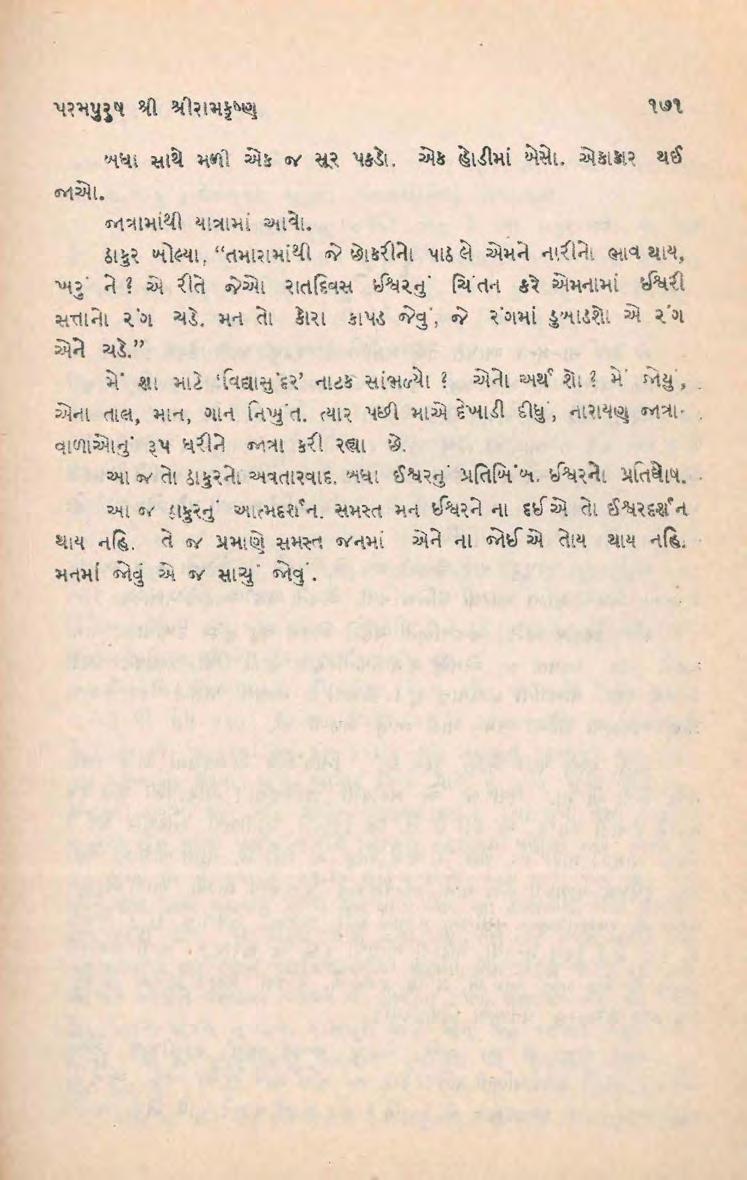 પરમપુરુષ શ્રી શ્રીરામકૃષ્ણ ૧૭૧
બધા સાથે મળી એક જ સૂર પકડો. એક હોડીમાં બેસો. એકાકાર થઈ
જાઓ.
જાત્રામાંથી યાત્રામાં આવો.
ઠાકુર બોલ્યા, “તમારામાંથી જે છોકરીનો પાઠ લે એમને નારીનો ભાવ થાય,
ખરું ને ? એ રીતે જેઓ રાતદિવસ ઈશ્વરનું ચિંતન કરે એમનામાં ઈશ્વરી
સત્તાનો રંગ ચડે. મન તો કોરા કાપડ જેવું, જે રંગમાં ડુબાડશો એ રંગ
એને ચડે.”
મેં શા માટે ‘વિદ્યાસુંદર’ નાટક સાંભળ્યો ? એનો અર્થ શો ? મેં જોયું,
એના તાલ, માન, ગાન નિખુંત. ત્યાર પછી માએ દેખાડી દીધું, નારાયણ જાત્રા-
વાળાઓનું રૂપ ધરીને જાત્રા કરી રહ્યા છે.
આ જ તો ઠાકુરનો અવતારવાદ. બધા ઈશ્વરનું પ્રતિબિંબ. ઈશ્વરનો પ્રતિઘોષ.
આ જ ઠાકુરનું આત્મદર્શન. સમસ્ત મન ઈશ્વરને ના દઈએ તો ઈશ્વરદર્શન
થાય નહિ. તે જ પ્રમાણે સમસ્ત જનમાં એને ના જોઈએ તોય થાય નહિ.
મનમાં જોવું એ જ સાચું જોવું.